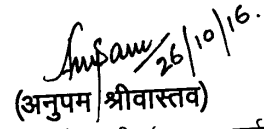 Anupam/26/10/16.
(अनुपम श्रीवास्तव)